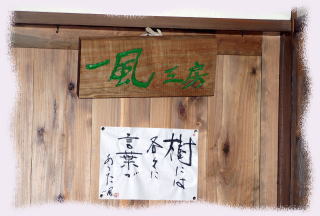 一風工房
樹には
各々に
言葉が
あった